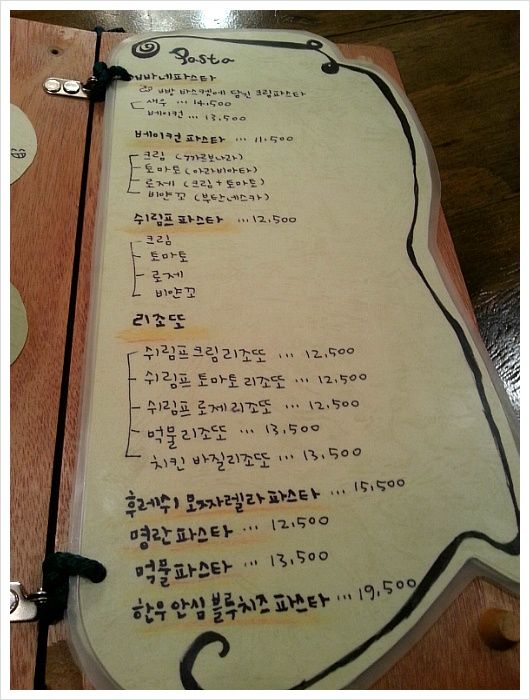 Pasta
빠네파스타
빵 바스켓에 담긴 크림파스타
새우 ... 14,500
베이컨 ... 13,500
베이컨 파스타 ... 11,500
크림 (까르보나라)
토마토 (아라비아타)
로제 (크림 + 토마토)
비얀꼬 (부탄네스카)
쉬림프 파스타 ... 12,500
크림
토마토
로제
비얀꼬
리조또
쉬림프크림리조또 ... 12,500
쉬림프 토마토리조또 ... 12,500
쉬림프 로제리조또 ... 12,500
먹물리조또 ... 13,500
치킨 바질리조또 ... 13,500
후레쉬 모짜렐라파스타 ... 15,500
명란파스타 ... 12,500
먹물파스타 ... 13,500
한우안심블루치즈파스타 ... 19,500